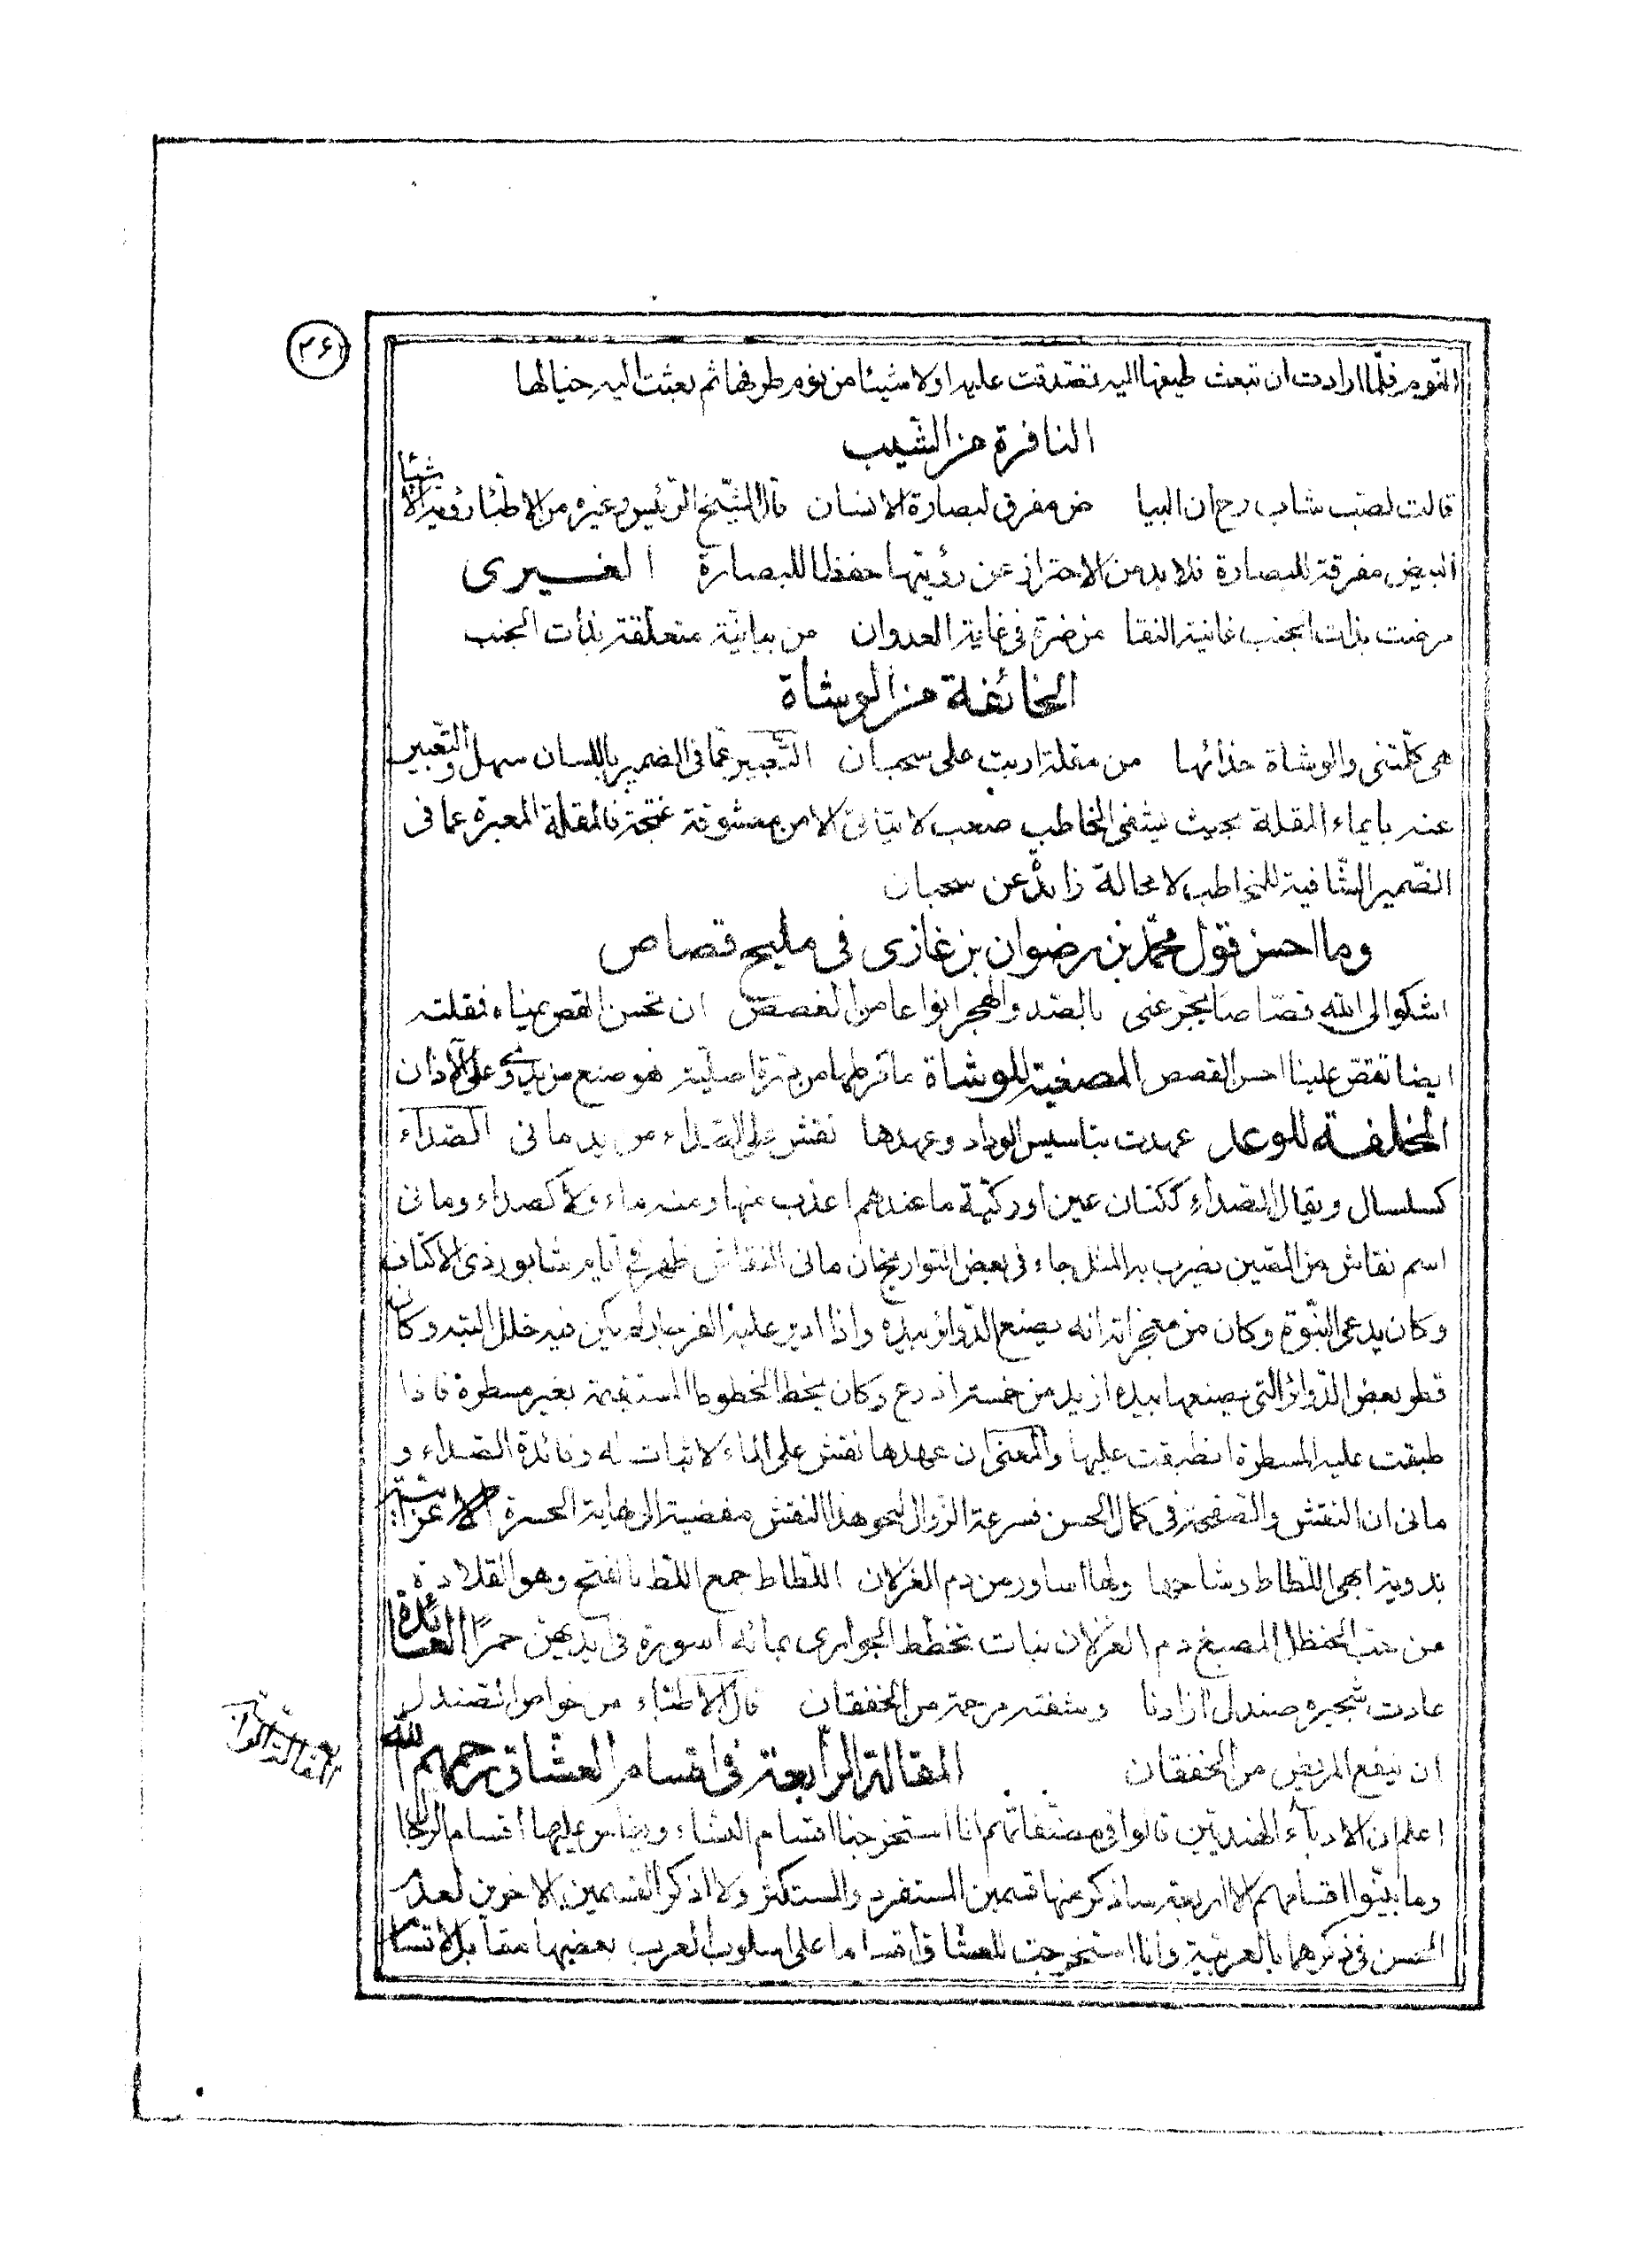 ٣٦١
النّوم فلمّا ارادت ان تبعث طيفها اليه تصدقت عليه اولا شيئا من نوم طرفها ثم بعثت اليه خيالها
النافرة من الشيب
قالت لصب شاب رح ان البيا ض مفرق لبصارة الانسان قال الشيخ الرئيس وغيره من الاطباء رؤية الاشياء
البيض مفرقة للبصارة فلا بد من الاحتراز عن رؤيتها حفظا للبصارة الغيرى
مرضت بذات الجنب غانية النقا من ضرة في غاية العدوان من بيانية متعلقة بذات الجنب
الخائفة من الوشاة
هي كلّمتني والوشاة حذائها من مقلة اربت على سحبان التّعبير عمّا في الضمير باللسان سهل والتّعبير
عنه بايماء المقلة بحيث يشفى المخاطب صعب لا يتأتى الا من معشوقة غنجة فالمقلة المعبرة عما في
الضّمير الشّافية للمخاطب لا محالة زائدة عن سحبان
وما احسن قول محمّد بن رضوان بن غازى في مليح قصاص
اشكو الى الله قصّاصا يجرّعنى بالصّد والهجر انواعا من الغصص ان تحسن القص يمناه فمقلته
ايضا تقصّ علينا احسن القصص المصغية للوشاة ما قرطها من درة اصلية هو صنع من على الآذان
المخلفة للوعد عهدت بتاسيس الوداد وعهدها نقش على الصّداء من يد مانى الصّداء
كسلسال ويقال الصّداء ككتّان عين او ركيّة ما عندهم اعذب منها ومنه ماء ولا كصداء ومانى
اسم نقاش من الصّين يضرب به المثل جاء في بعض التواريخ ان مانى النقاش ظهر في ايام شابور ذى الاكتاف
وكان يدعى النّبوة وكان من معجزاته انه يصنع الدّوائر بيده واذا ادير عليه الفرجار لم يكن فيه خلل البتة وكان
قطر بعض الدّوائر التى يصنعها بيده ازيد من خمسة اذرع وكان يخط الخطوط المستقيمة بغير مسطرة فاذا
طبقت عليه المسطرة انطبقت عليها والمعنى ان عهدها نقش على الماء لا ثبات له وفائدة الصّداء و
مانى ان النقش والصّفحة في كمال الحسن فسرعة الزّوال لنحو هذا النقش مفضية الى نهاية الحسرة الاعرابية
بدوية ابهى اللّطاط وشاحها ولها اساور من دم الغزلان اللّطاط جمع اللّط بالفتح وهو القلادة
من حبّ الحنظل المصبغ دم الغزلان نبات تخطط الجوارى بمائه اسورة في ايديهن حمرًا العائدة
عادت شجيره صندل ازادنا وشفته مرحمة من الخفقان قال الاطبّاء من خواص الصّندل
ان ينفع المريض من الخفقان المقالة الرّابعة في اقسام العشّاق رحمهم الله
اعلم ان الادباء الهنديّين قالوا في مصنّفاتهم انا استخرجنا اقسام النساء ويقاس عليها اقسام الرّجال
وما بيّنوا اقسامهم الا اربعة ساذكر منها قسمين المستفرد والمستكثر ولا اذكر القسمين الاخرين لعدم
الحسن في ذكرهما بالعربيّة وانا استخرجت للعشاق اقساما على اسلوب العرب بعضها مقابل لاقسام
المقالة الرّابعة